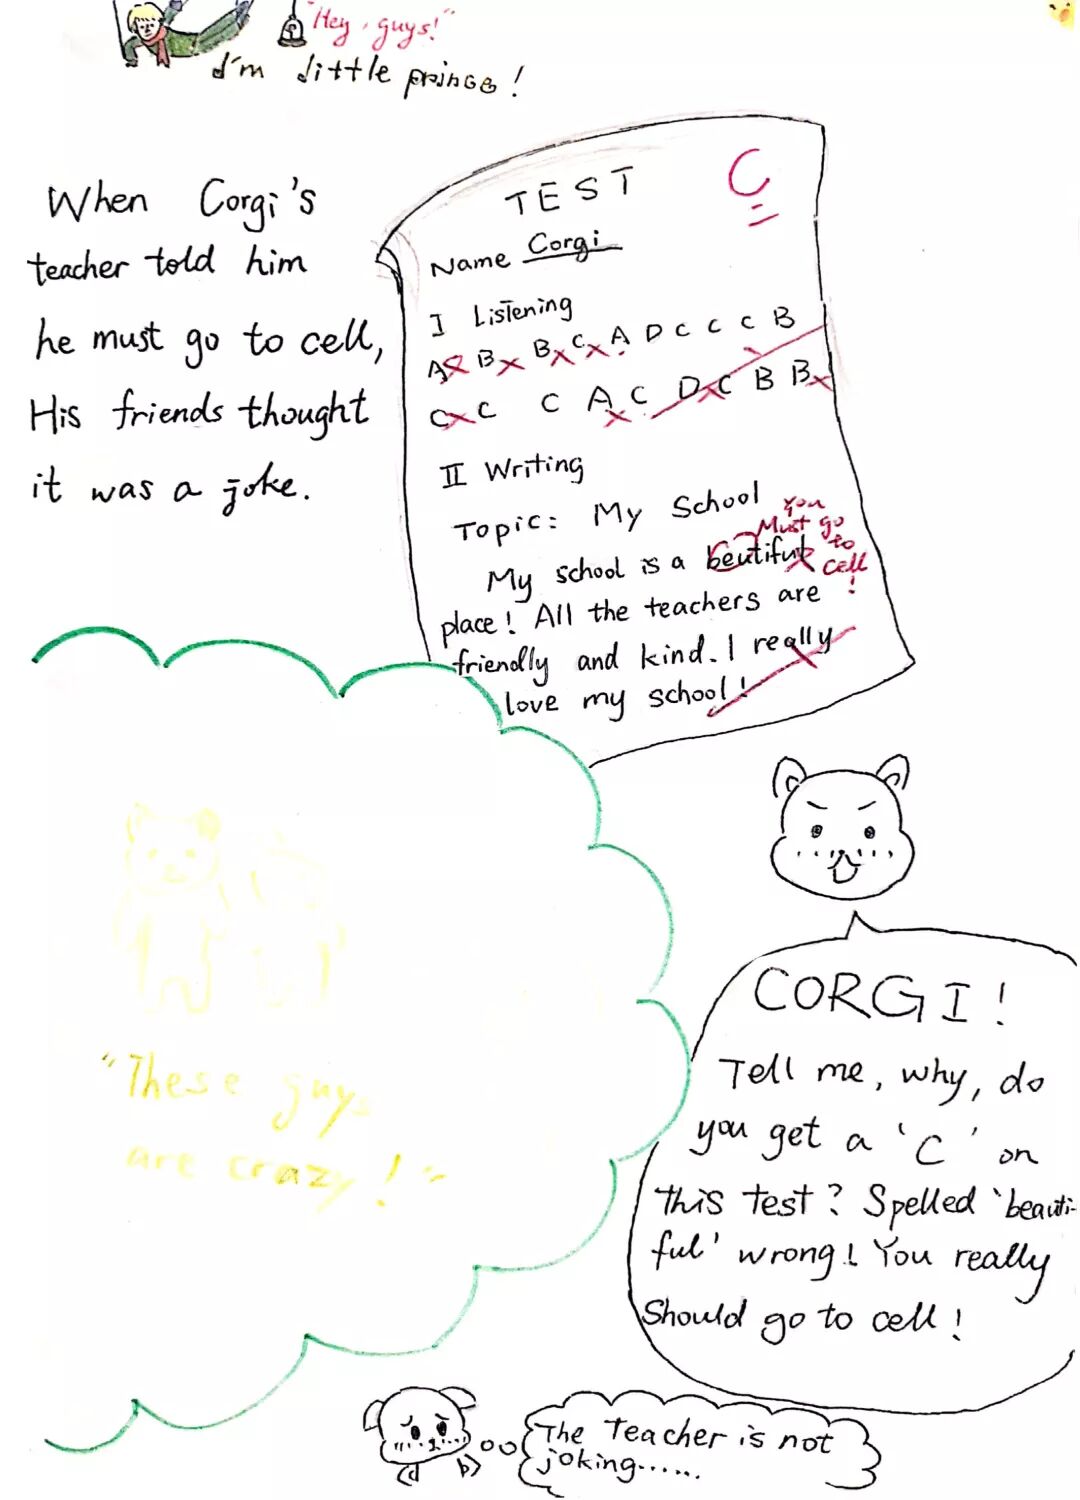 "Hey, guys!"
I'm little prince!
When Corgi's
teacher told him
he must go to cell,
His friends thought
it was a joke.
TEST
C
Name Corgi
I Listening
A B B C A D C C C B
C C C A C D C B B
II Writing
Topic: My School
You
Must go
to
cell
!
My school is a beutiful
place! All the teachers are
friendly and kind. I really
love my school!
"These guys
are crazy!"
CORGI!
Tell me, why, do
you get a 'C' on
this test? Spelled 'beauti-
ful' wrong! You really
Should go to cell!
The Teacher is not
joking......